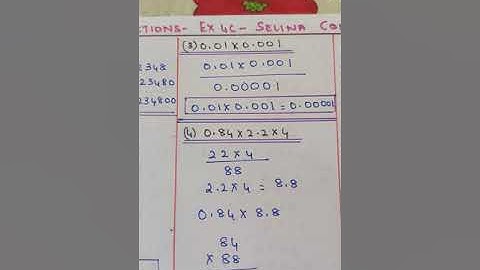 CTIONS- EX 4C- SELINA CO
2348
23480
234800
(3) 0.01 x 0.001
0.01 x 0.001
0.00001
0.01 x 0.001 = 0.00001
(4) 0.84 x 2.2 x 4
22 x 4
88
2.2 x 4 = 8.8
0.84 x 8.8
84
x 88